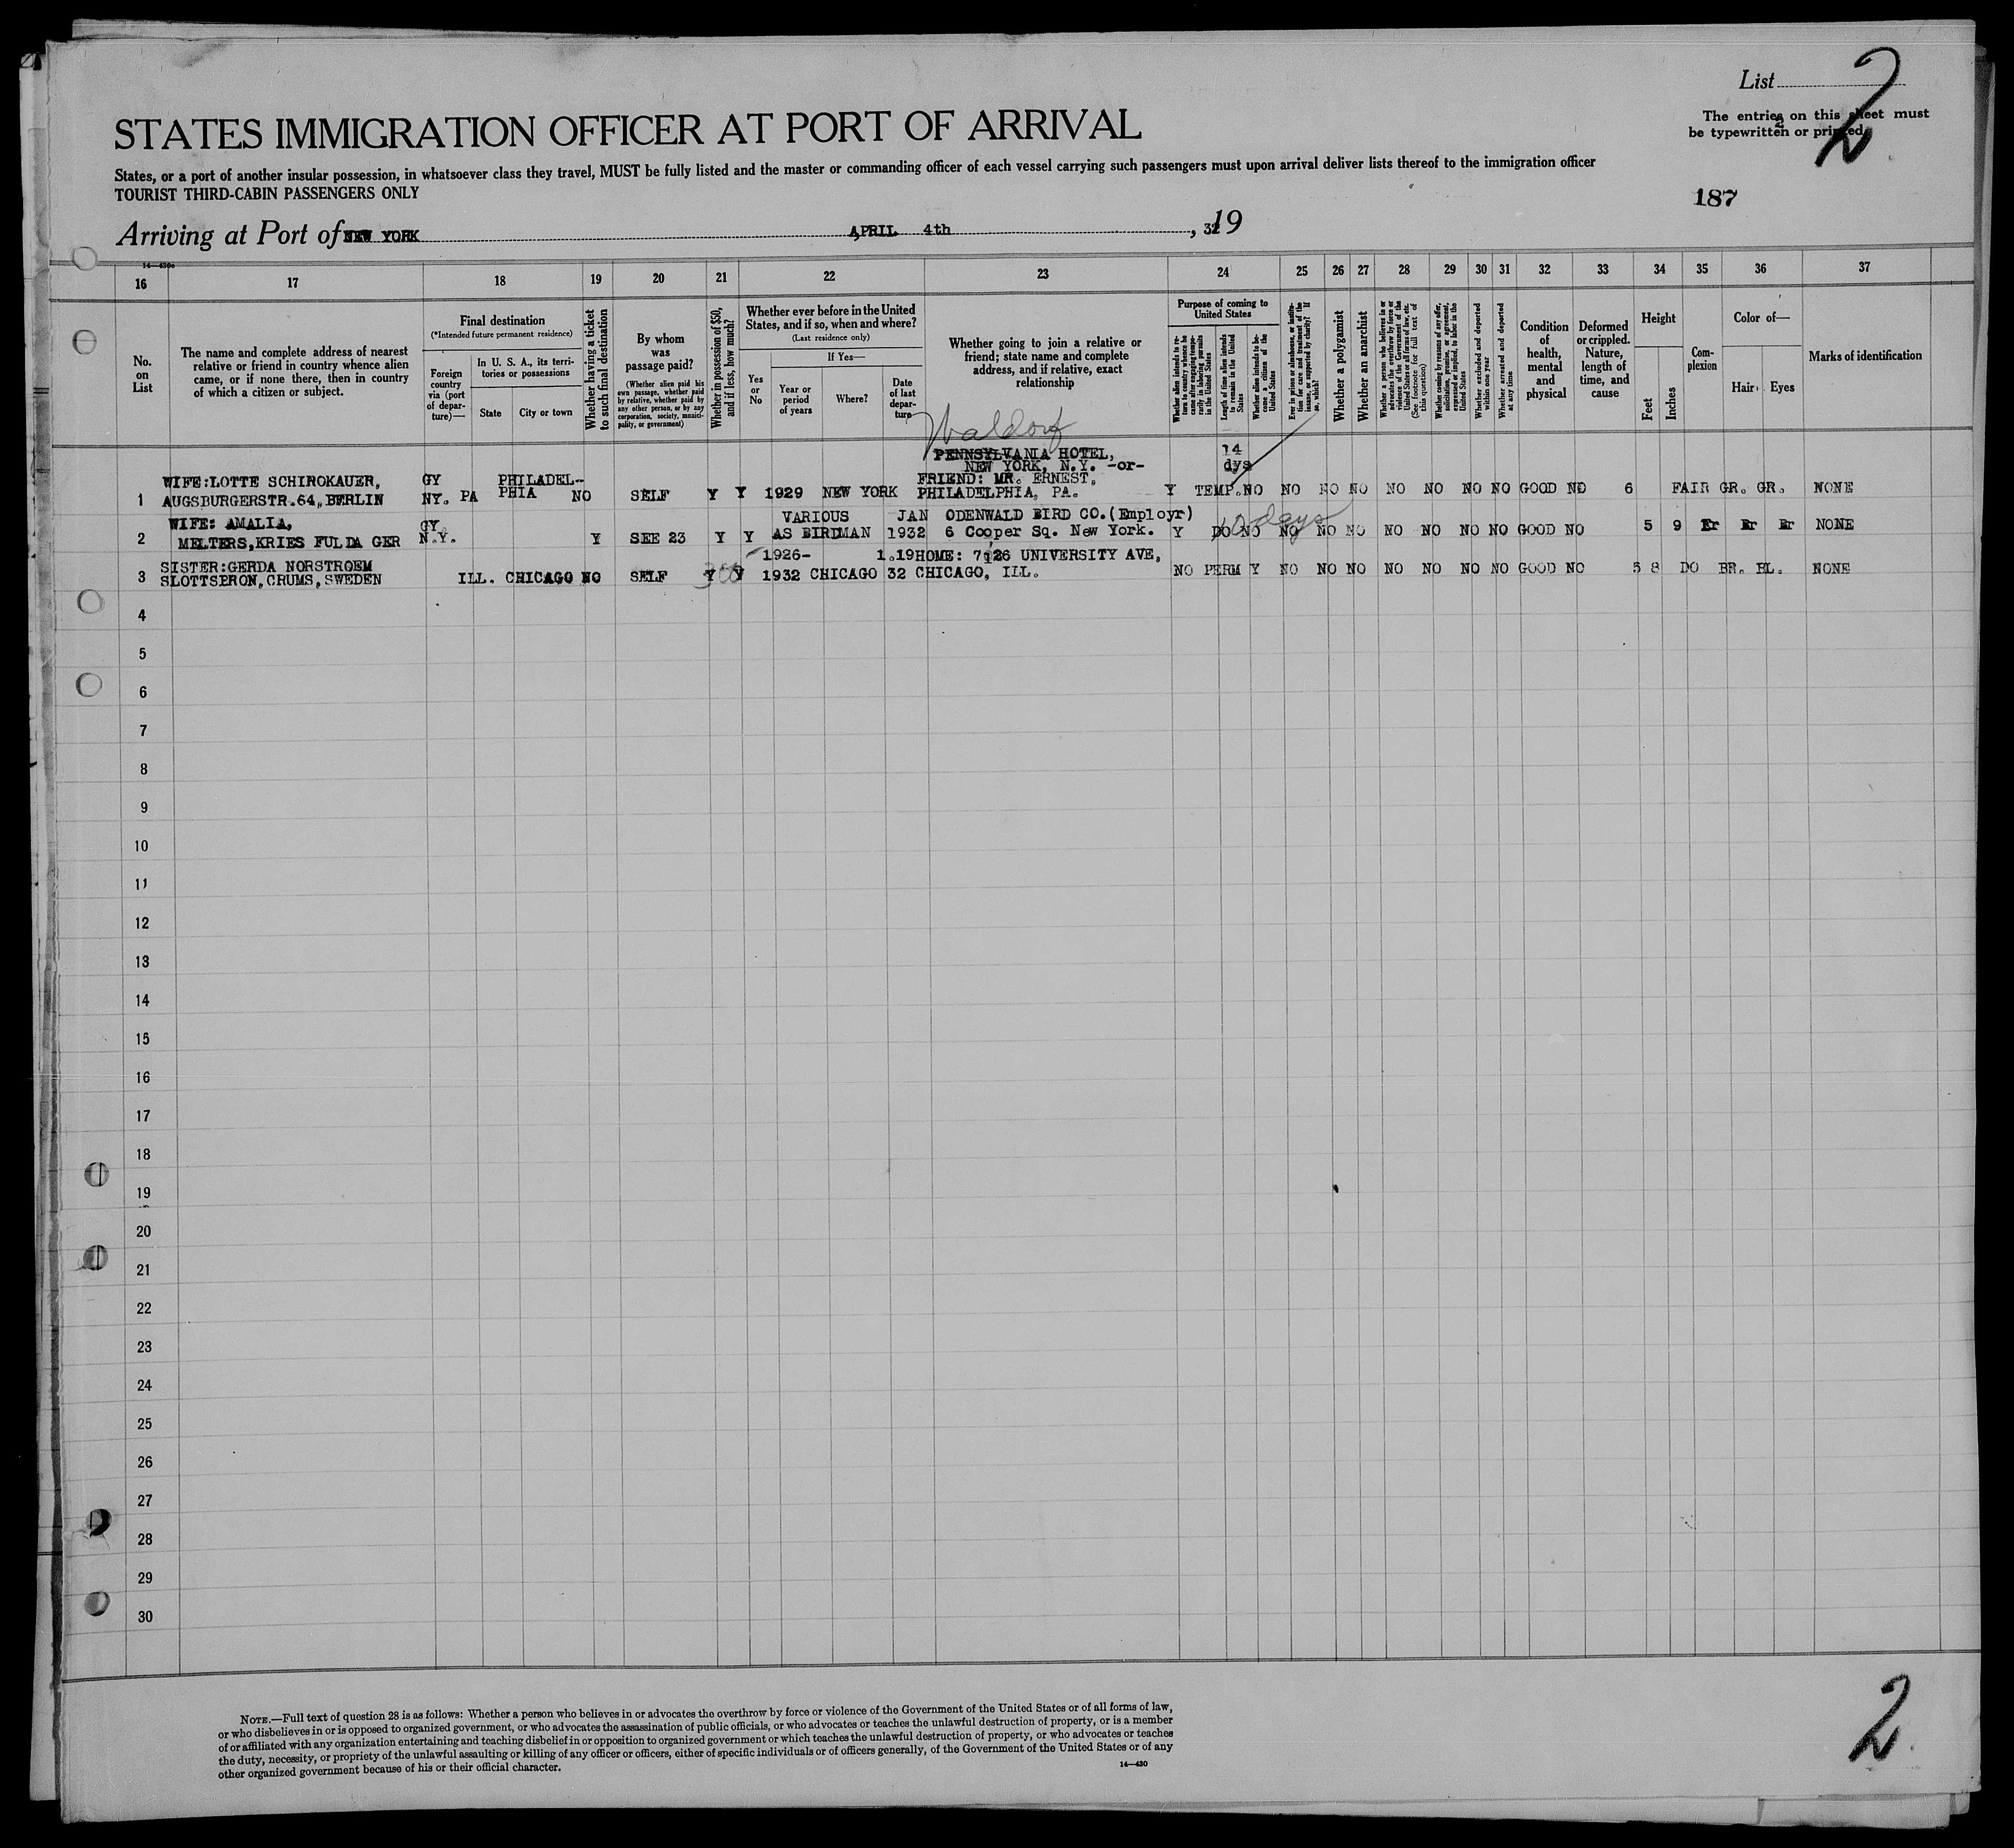 List 2
The entries on this sheet must
be typewritten or printed.
2
STATES IMMIGRATION OFFICER AT PORT OF ARRIVAL
States, or a port of another insular possession, in whatsoever class they travel, MUST be fully listed and the master or commanding officer of each vessel carrying such passengers must upon arrival deliver lists thereof to the immigration officer
TOURIST THIRD-CABIN PASSENGERS ONLY
187
Arriving at Port of NEW YORK, APRIL 4th, 19 32
16 17 18 19 20 21 22 23 24 25 26 27 28 29 30 31 32 33 34 35 36 37
No.
on
List
The name and complete address of nearest
relative or friend in country whence alien
came, or if none there, then in country
of which a citizen or subject.
Final destination
(*Intended future permanent residence)
Foreign
country
via (port
of depar-
ture)—
In U. S. A., its terri-
tories or possessions
State
City or town
Whether having a ticket
to such final destination
By whom
was
passage paid?
(Whether alien paid his
own passage, whether paid
by relative, whether paid by
any other person, or by any
corporation, society, munici-
pality, or government)
Whether in possession of $50,
and if less, how much?
Whether ever before in the United
States, and if so, when and where?
(Last residence only)
Yes
or
No
If Yes—
Year or
period
of years
Where?
Date
of last
depar-
ture
Whether going to join a relative or
friend; state name and complete
address, and if relative, exact
relationship
Purpose of coming to
United States
Whether alien intends to re-
turn to country whence he
came after engaging tempo-
rarily in laboring pursuits
in the United States
Length of time alien intends
to remain in the United
States
Whether alien intends to be-
come a citizen of the
United States
Ever in prison or almshouse, or institu-
tion for care and treatment of the
insane, or supported by charity? If
so, which?
Whether a polygamist
Whether an anarchist
Whether a person who believes in or
advocates the overthrow by force or
violence of the Government of the
United States or all forms of law, etc.
(See footnote for full text of
this question)
Whether coming by reasons of any offer,
solicitation, promise, or agreement,
expressed or implied, to labor in the
United States
Whether excluded and deported
within one year
Whether arrested and deported
at any time
Condition
of
health,
mental
and
physical
Deformed
or crippled.
Nature,
length of
time, and
cause
Height
Feet
Inches
Com-
plexion
Color of—
Hair
Eyes
Marks of identification
Waldorf
PENNSYLVANIA HOTEL, 14
NEW YORK, N.Y. -or- dys
WIFE:LOTTE SCHIROKAUER, GY PHILADEL- FRIEND: MR. ERNEST,
1 AUGSBURGERSTR.64, BERLIN NY. PA PHIA NO SELF Y Y 1929 NEW YORK PHILADELPHIA, PA. Y TEMP. NO NO NO NO NO NO NO NO GOOD NO 6 FAIR GR. GR. NONE
WIFE: AMALIA, GY. VARIOUS JAN ODENWALD BIRD CO.(Employr) days
2 MELTERS,KRIES FULDA GER N.Y. Y SEE 23 Y Y AS BIRDMAN 1932 6 Cooper Sq. New York. Y DO NO NO NO NO NO NO NO NO GOOD NO 5 9 Br Br NONE
SISTER:GERDA NORSTROEM 1926- 1.19 HOME: 7126 UNIVERSITY AVE,
3 SLOTTSBRON,CRUMS,SWEDEN ILL. CHICAGO NO SELF Y Y 1932 CHICAGO 32 CHICAGO, ILL. NO PERM Y NO NO NO NO NO NO NO GOOD NO 5 8 DO BR. BL. NONE
4
5
6
7
8
9
10
11
12
13
14
15
16
17
18
19
20
21
22
23
24
25
26
27
28
29
30
NOTE.—Full text of question 28 is as follows: Whether a person who believes in or advocates the overthrow by force or violence of the Government of the United States or of all forms of law,
or who disbelieves in or is opposed to organized government, or who advocates the assassination of public officials, or who advocates or teaches the unlawful destruction of property, or is a member
of or affiliated with any organization entertaining and teaching disbelief in or opposition to organized government or which teaches the unlawful destruction of property, or who advocates or teaches
the duty, necessity, or propriety of the unlawful assaulting or killing of any officer or officers, either of specific individuals or of officers generally, of the Government of the United States or of any
other organized government because of his or their official character.
14—430
2